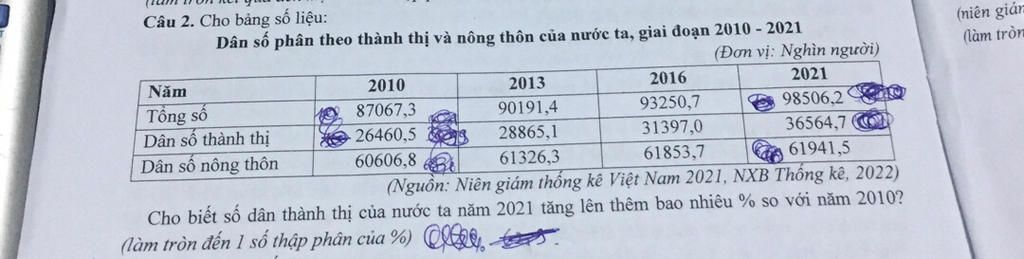 Câu 2. Cho bảng số liệu:
(niên giám
Dân số phân theo thành thị và nông thôn của nước ta, giai đoạn 2010 - 2021
(làm tròn
(Đơn vị: Nghìn người)
Năm 2010 2013 2016 2021
Tổng số 87067,3 90191,4 93250,7 98506,2
Dân số thành thị 26460,5 28865,1 31397,0 36564,7
Dân số nông thôn 60606,8 61326,3 61853,7 61941,5
(Nguồn: Niên giám thống kê Việt Nam 2021, NXB Thống kê, 2022)
Cho biết số dân thành thị của nước ta năm 2021 tăng lên thêm bao nhiêu % so với năm 2010?
(làm tròn đến 1 số thập phân của %)